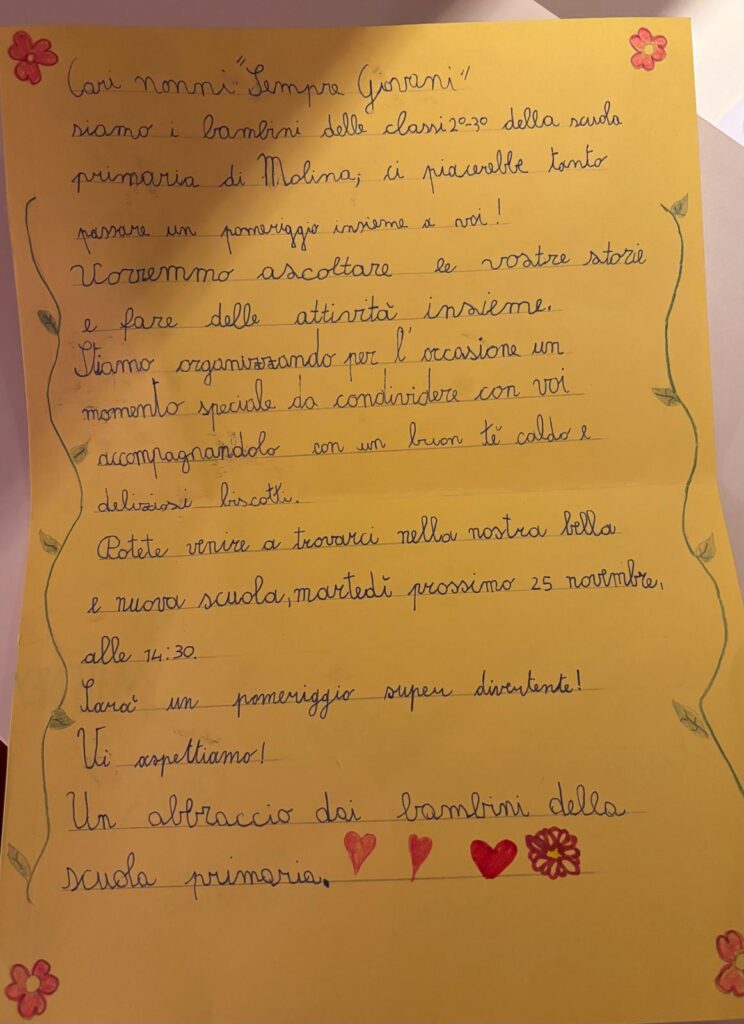 Cari nonni "Sempre Giovani"
siamo i bambini delle classi 2º-3º della scuola
primaria di Molina; ci piacerebbe tanto
passare un pomeriggio insieme a voi!
Vorremmo ascoltare le vostre storie
e fare delle attività insieme.
Stiamo organizzando per l'occasione un
momento speciale da condividere con voi
accompagnandolo con un buon tè caldo e
deliziosi biscotti.
Potete venire a trovarci nella nostra bella
e nuova scuola, martedì prossimo 25 novembre,
alle 14:30.
Sarà un pomeriggio super divertente!
Vi aspettiamo!
Un abbraccio dai bambini della
scuola primaria.